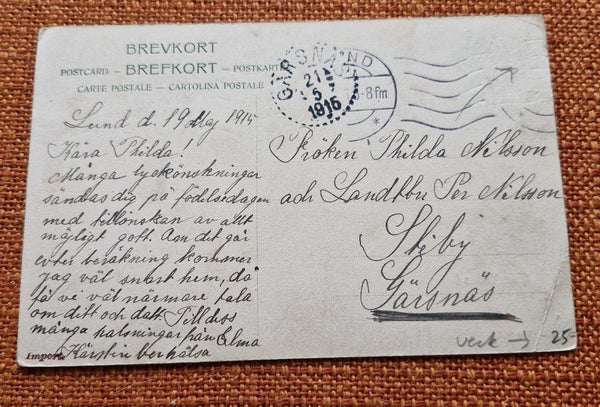 BREVKORT
POSTCARD – BREFKORT – POSTKARTE
CARTE POSTALE – CARTOLINA POSTALE
GÄRSNÄS
21
5
1915
ND
-8 fm
Lund d. 19 Maj 1915
Kära Thilda!
Många lyckönskningar
sändas dig på födelsedagen
med tillönskan av allt
möjligt gott. Om det går
efter beräkning kommer
jag väl snart hem, då
få vi väl närmare tala
om ditt och datt. Till dess
många hälsningar från Elma
Kärstin Import
Fröken Thilda Nilsson
och Landtbr Per Nilsson
Stiby
Gärsnäs
verk → 25-